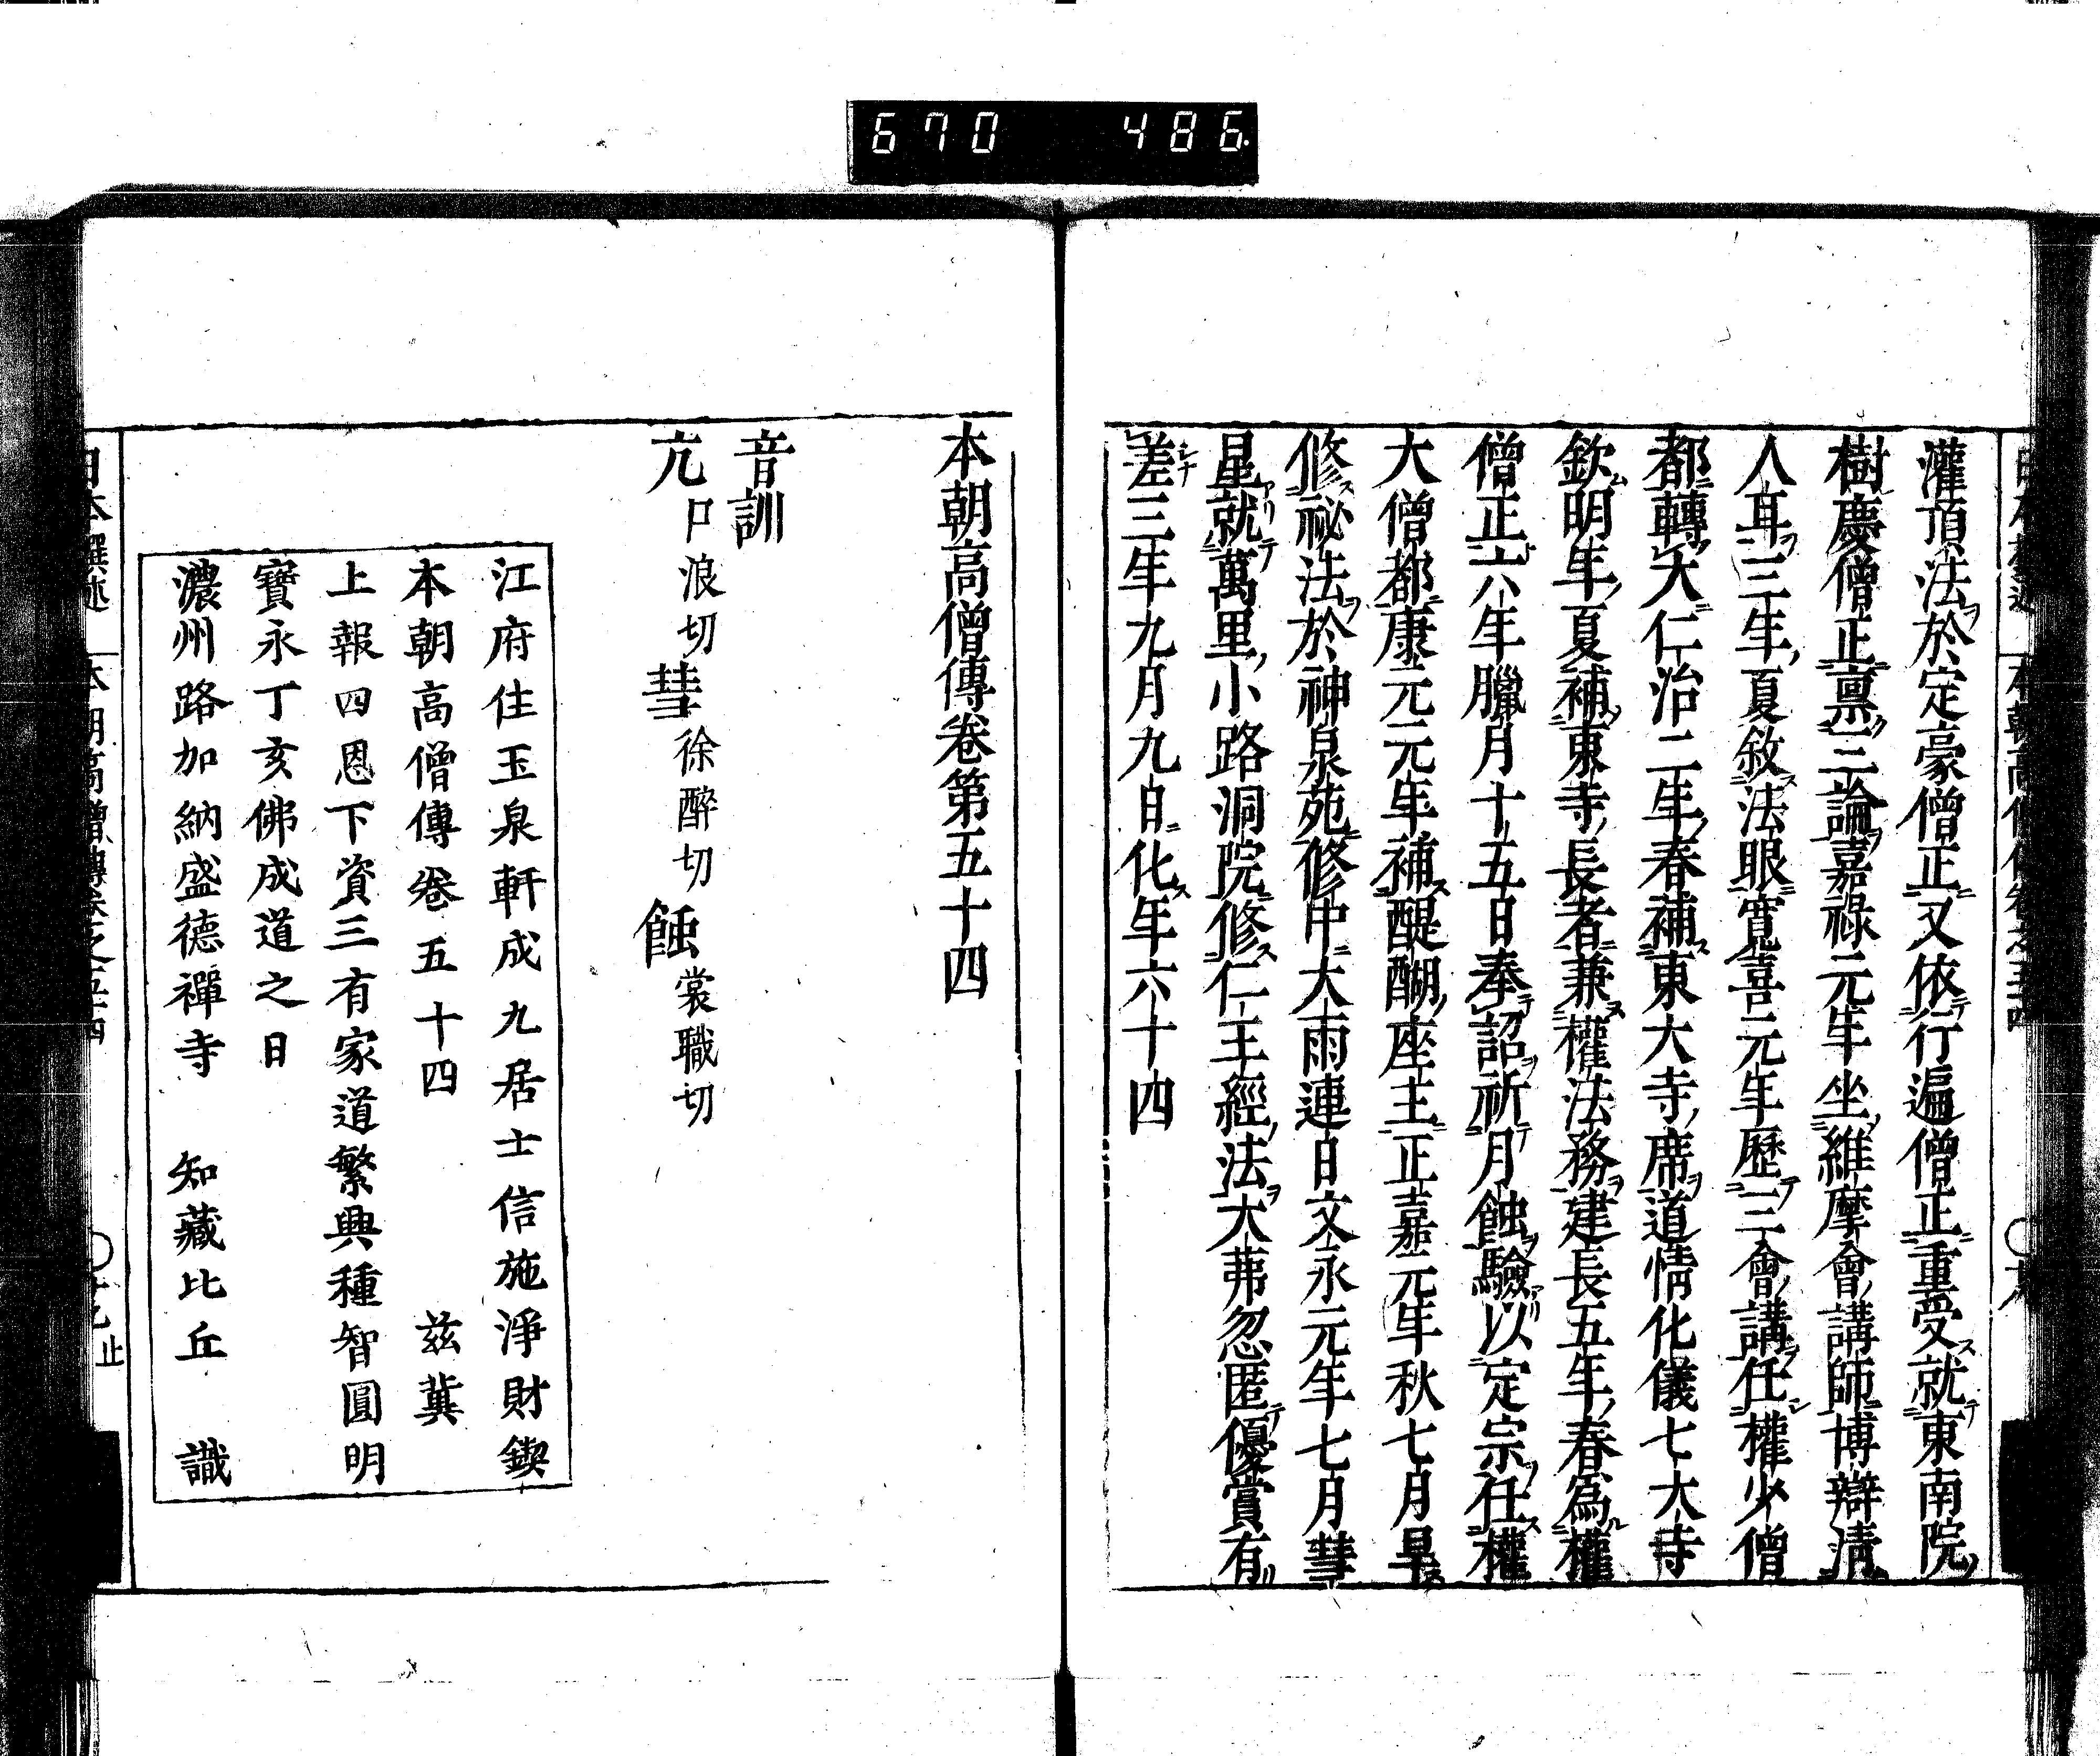 670 486
灌頂法於定豪僧正又依行遍僧正重受就東南院
樹慶僧正稟三論嘉祿元年坐維摩會講師博辯清
人耳三年夏敘法眼寬喜元年歷三會講任權少僧
都轉大仁治二年春補東大寺席道情化儀七大寺
欽明年夏補東寺長者兼權法務建長五年春為權
僧正六年臘月十五日奉詔祈月蝕驗以定宗任權
大僧都康元元年補醍醐座主正嘉元年秋七月旱
修祕法於神泉苑修中大雨連日文永元年七月彗
星就萬里小路洞院修仁王經法大弗忽匿優賞有
差三年九月九日化年六十四
本朝高僧傳卷第五十四
音訓
亢 口浪切 彗 徐醉切 蝕 裳職切
江府住玉泉軒成九居士信施淨財鍥
本朝高僧傳卷五十四 茲冀
上報四恩下資三有家道繁興種智圓明
寶永丁亥佛成道之日
濃州路加納盛德禪寺 知藏比丘 識
日本撰述 本朝高僧傳卷之五十四